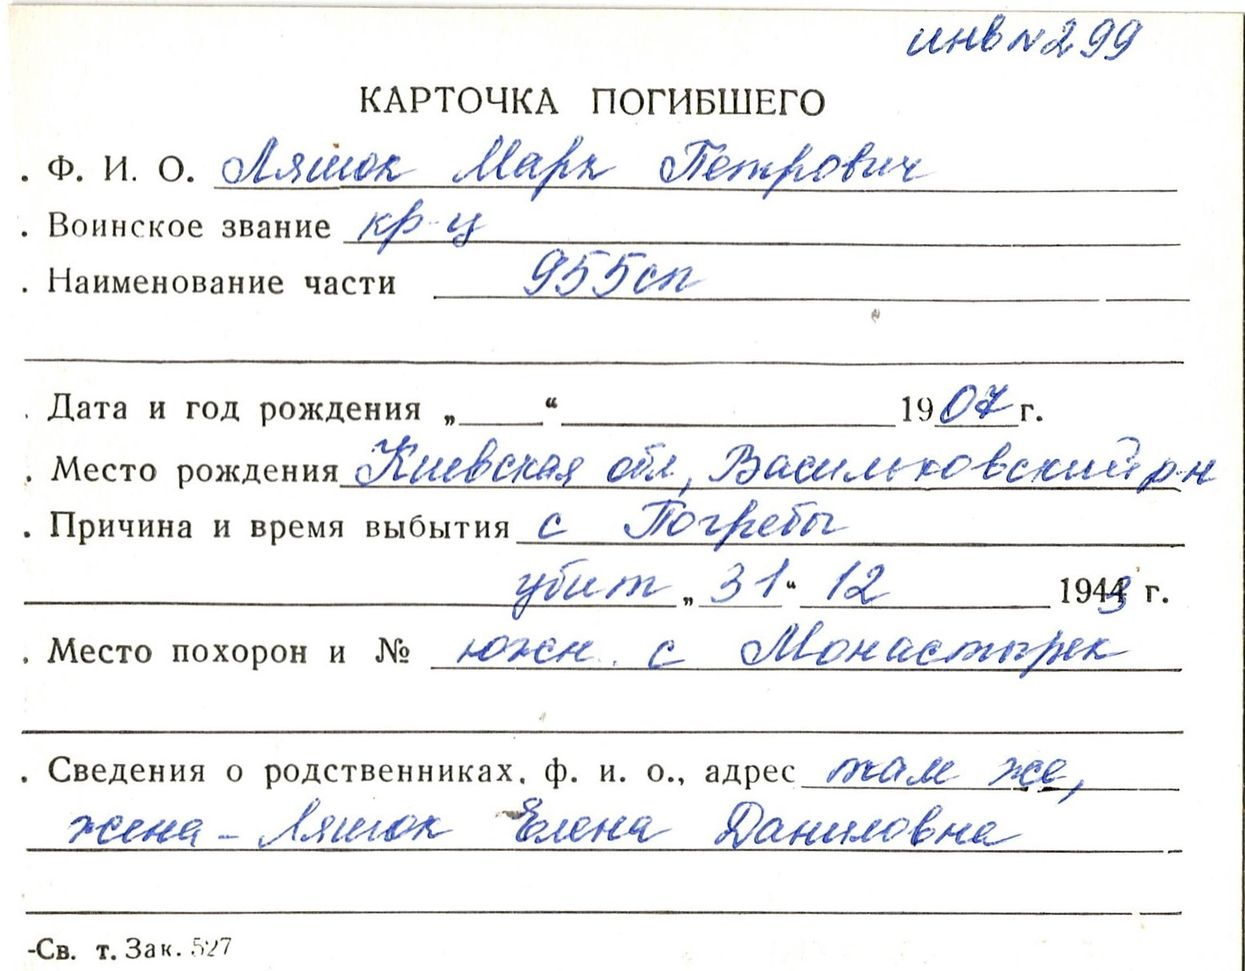 инв N 299
КАРТОЧКА ПОГИБШЕГО
. Ф. И. О. Ляшок Марк Петрович
. Воинское звание кр-ц
. Наименование части 955сп
. Дата и год рождения „ “ 1907 г.
. Место рождения Киевская обл, Васильковский р-н
. Причина и время выбытия с Погребы
убит „ 31 “ 12 1943 г.
. Место похорон и № южн. с Монастырек
. Сведения о родственниках, ф. и. о., адрес там же,
жена - Ляшок Елена Даниловна
-Св. т. Зак. 527